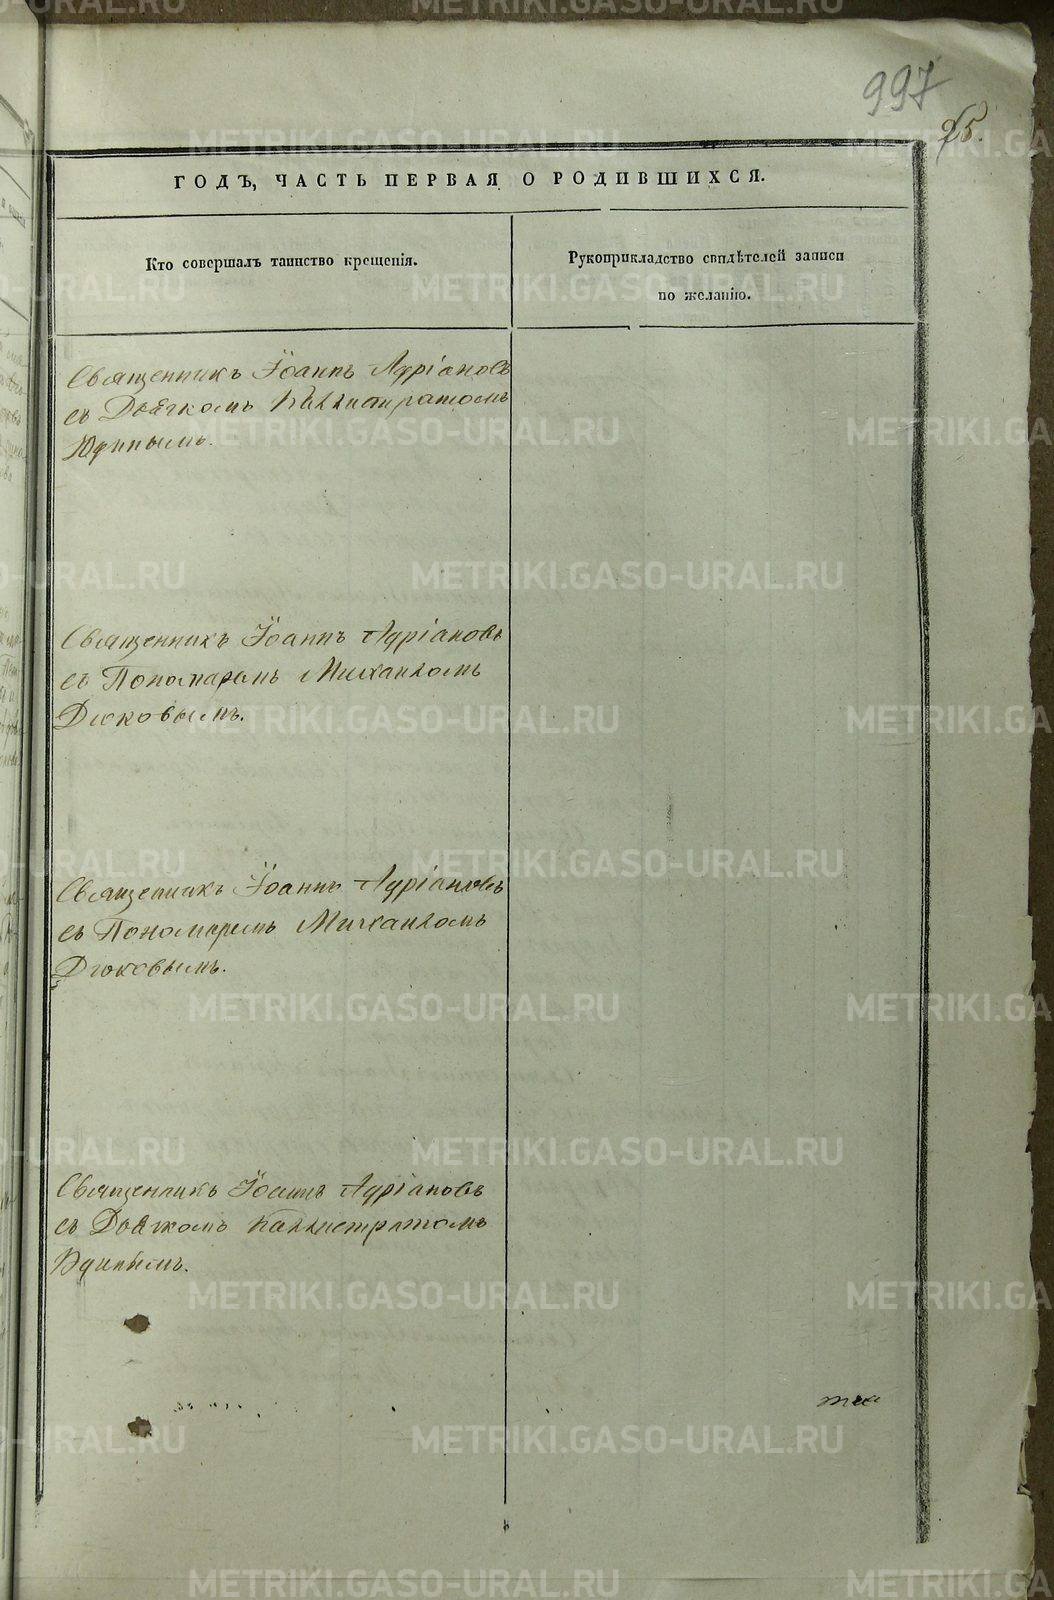 997
25.
ГОДЪ, ЧАСТЬ ПЕРВАЯ О РОДИВШИХСЯ.
Кто совершалъ таинство крещенія.
Рукоприкладство свидѣтелей записи
по желанію.
Священникъ Іоаннъ Адріановъ
съ Дьячкомъ Каллистратомъ
Юдинымъ.
Священникъ Іоаннъ Адріановъ
съ Пономаремъ Михаиломъ
Дюковымъ.
Священникъ Іоаннъ Адріановъ
съ Пономаремъ Михаиломъ
Дюковымъ.
Священникъ Іоаннъ Адріановъ
съ Дьячкомъ Каллистратомъ
Юдинымъ.
METRIKI.GASO-URAL.RU